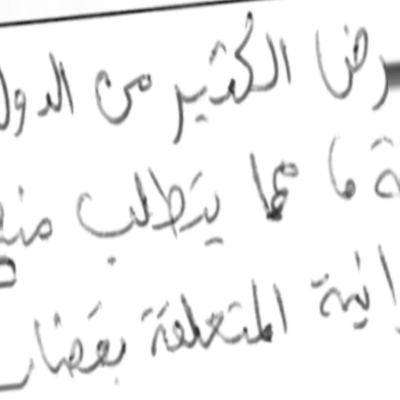 رض الكثير من الدول
ة ما مما يتطلب منه
انية المتعلقة بقضا